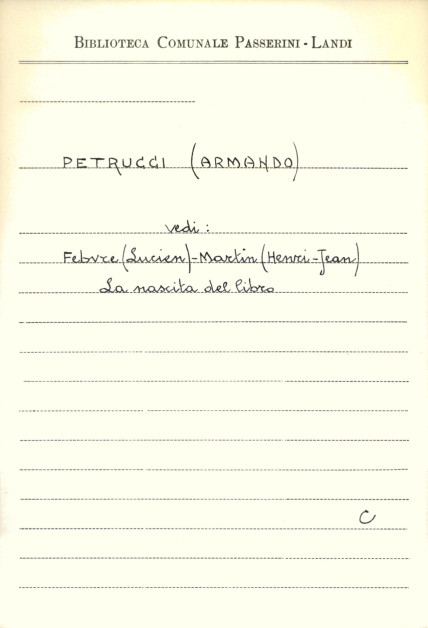 BIBLIOTECA COMUNALE PASSERINI - LANDI
PETRUCCI (ARMANDO)
vedi :
Febvre (Lucien) - Martin (Henri - Jean)
La nascita del libro
C